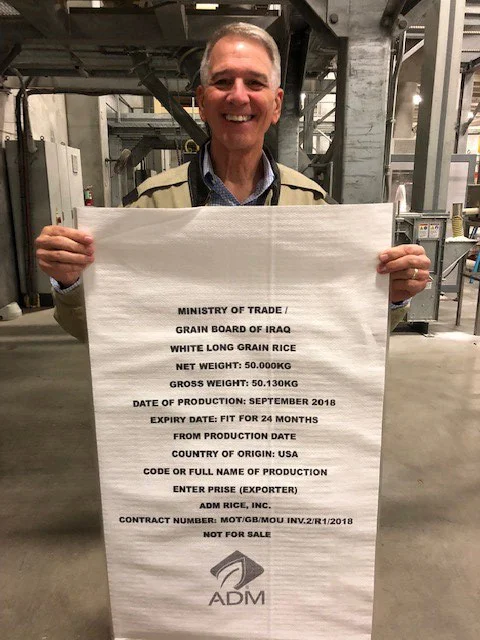 MINISTRY OF TRADE /
GRAIN BOARD OF IRAQ
WHITE LONG GRAIN RICE
NET WEIGHT: 50.000KG
GROSS WEIGHT: 50.130KG
DATE OF PRODUCTION: SEPTEMBER 2018
EXPIRY DATE: FIT FOR 24 MONTHS
FROM PRODUCTION DATE
COUNTRY OF ORIGIN: USA
CODE OR FULL NAME OF PRODUCTION
ENTER PRISE (EXPORTER)
ADM RICE, INC.
CONTRACT NUMBER: MOT/GB/MOU INV.2/R1/2018
NOT FOR SALE
ADM